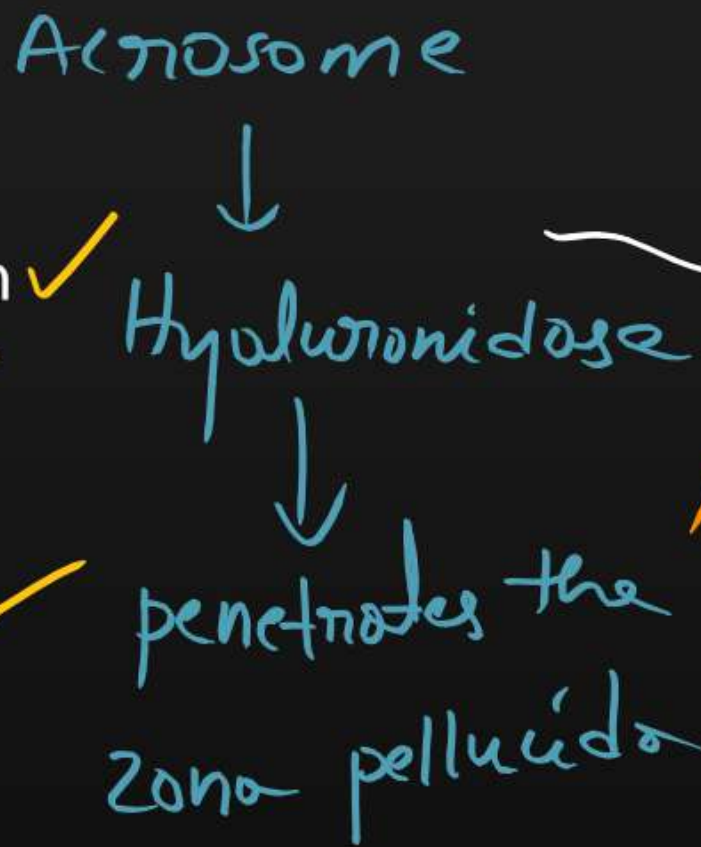 Acrosome
Hyaluronidase
penetrates the
zona pellucida